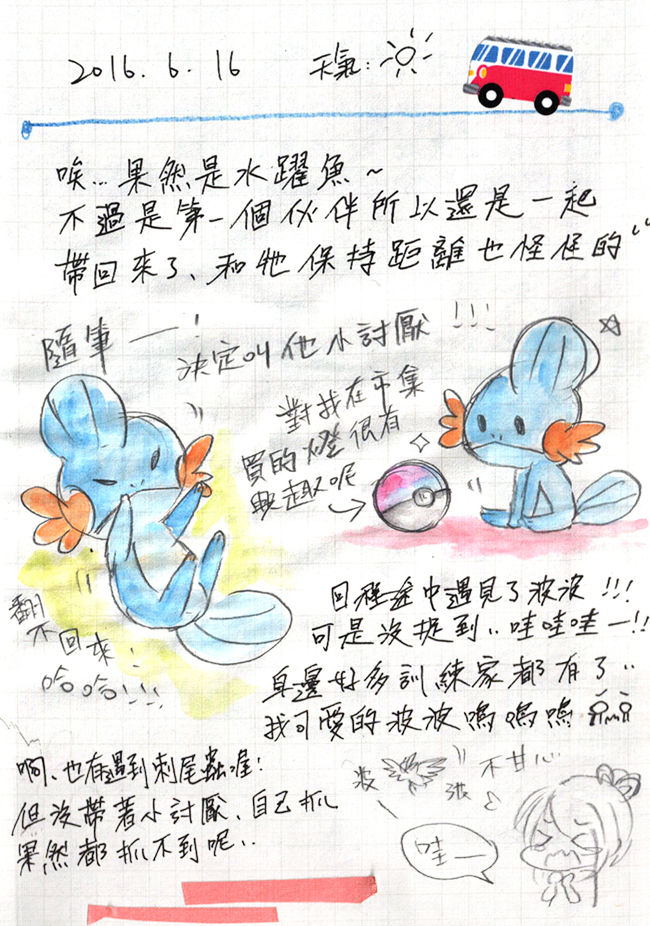 2016.6.16 天氣:
唉…果然是水躍魚~
不過是第一個伙伴所以還是一起
帶回來了、和牠保持距離也怪怪的"
隨筆一!
決定叫他小討厭!!!
對我在市集
買的燈很有
興趣呢
翻
不回來!
哈哈!!!
回程途中遇見了波波!!!
可是沒捉到..哇哇哇一!!
身邊好多訓練家都有了..
我可愛的波波嗚嗚嗚
啊、也有遇到刺尾蟲喔!
但沒帶著小討厭、自己抓
果然都抓不到呢..
波
波
不甘心
哇一